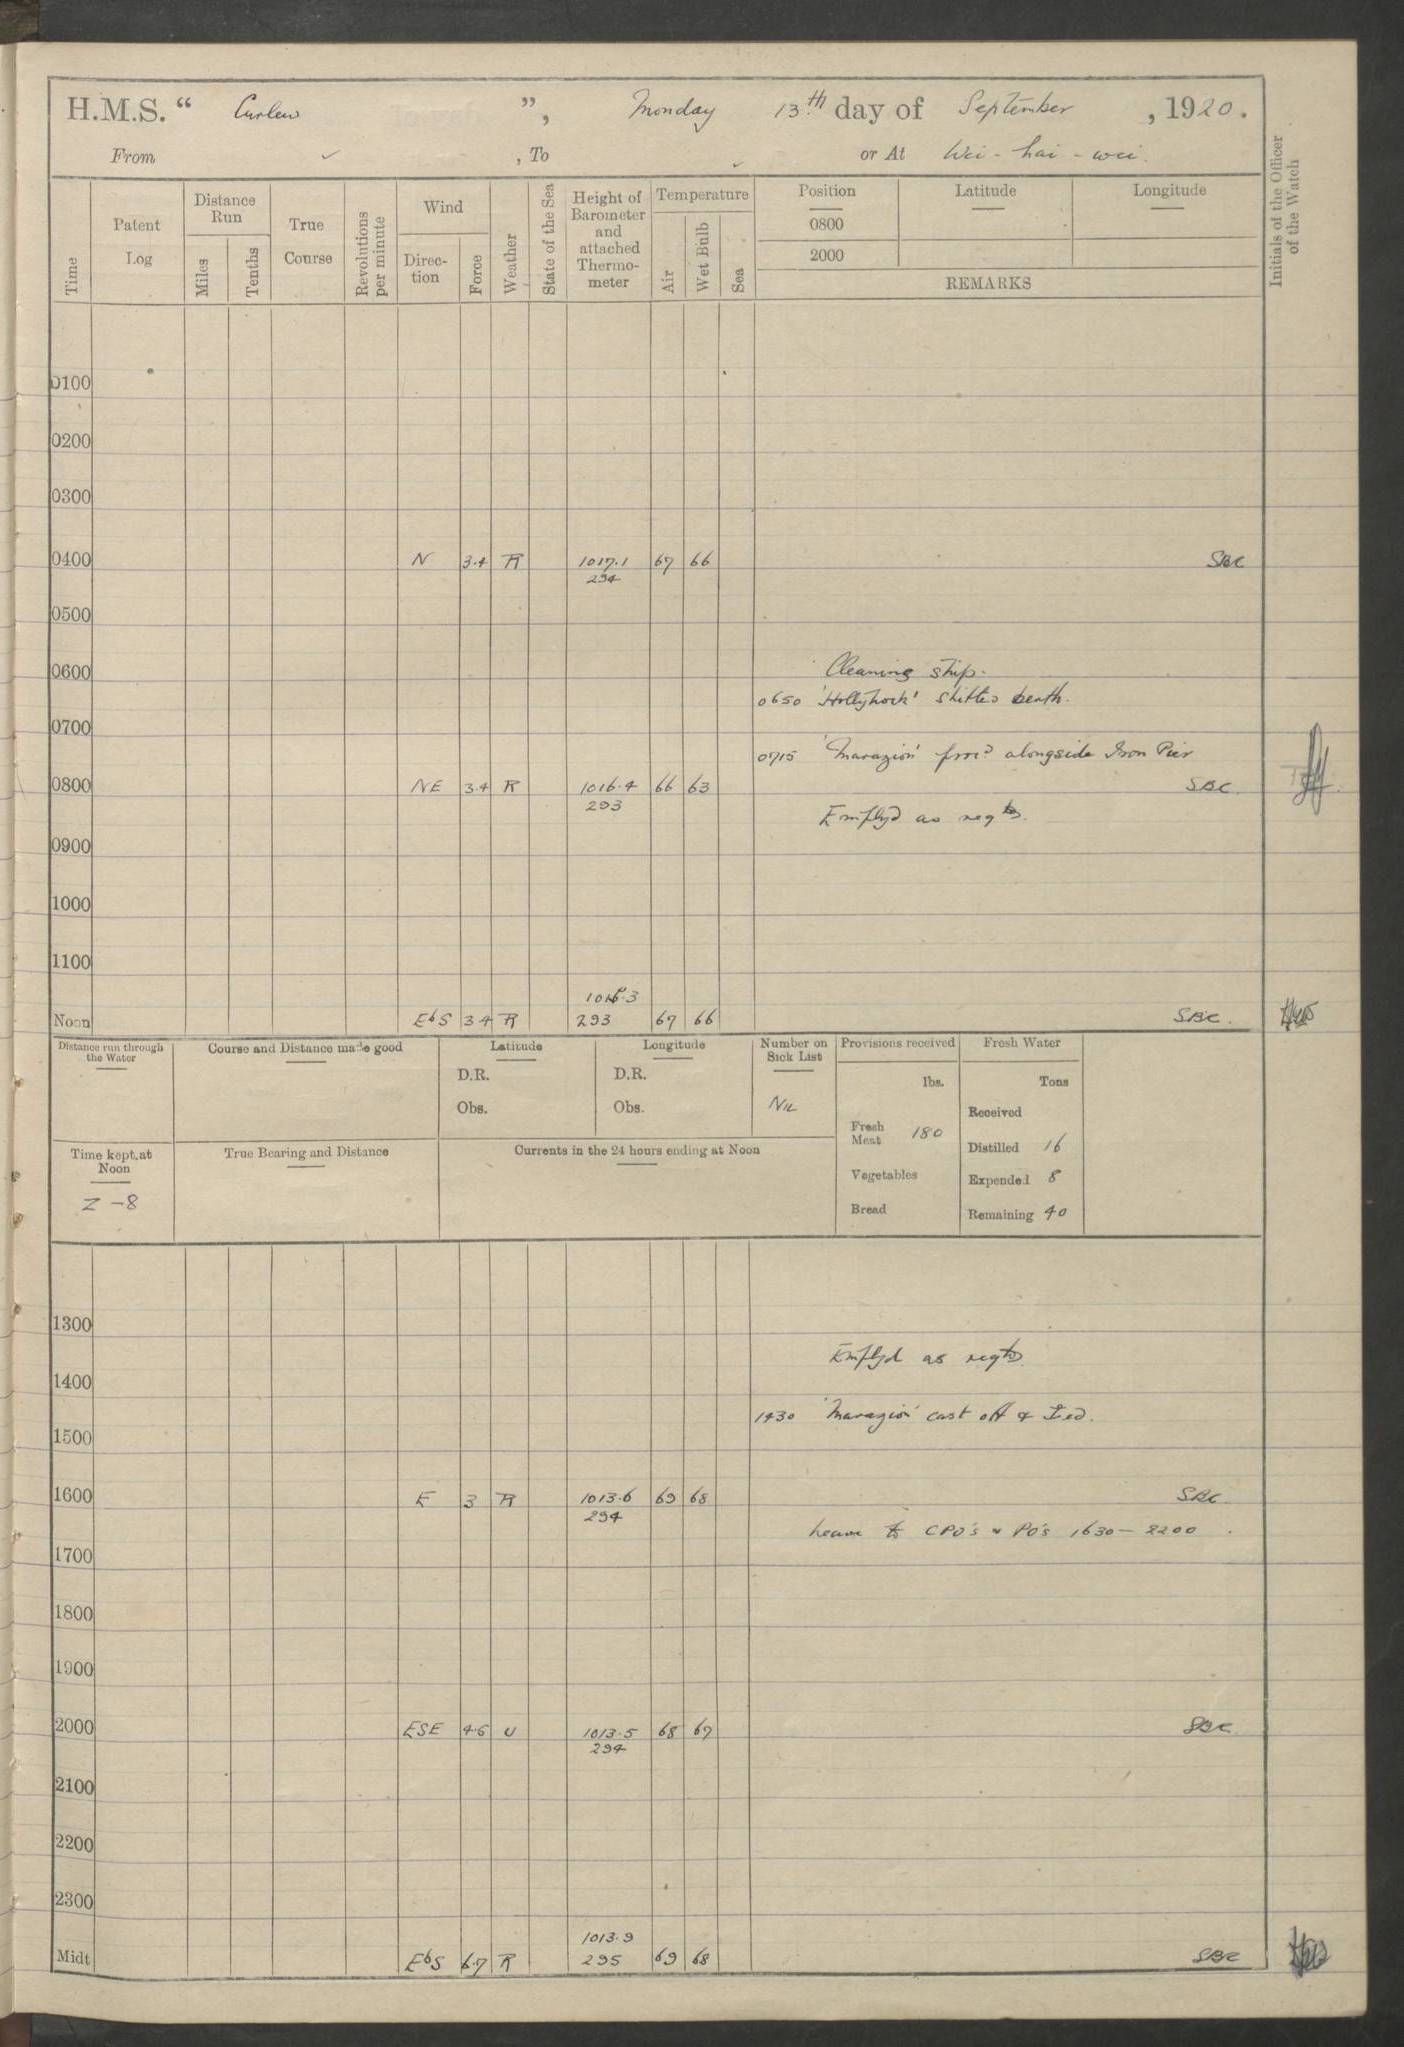 H.M.S. “ Curlew ”, Monday 13th day of September, 1920.
From ✓, To ✓ or At Wei-hai-wei.
Time
Patent Log
Distance Run
Miles
Tenths
True Course
Revolutions per minute
Wind
Direction
Force
Weather
State of the Sea
Height of Barometer and attached Thermometer
Temperature
Air
Wet Bulb
Sea
Position Latitude Longitude
0800
2000
REMARKS
Initials of the Officer of the Watch
0100
0200
0300
0400 N 3.4 R 1017.1 67 66 SBC
294
0500
0600 Cleaning ship.
0650 'Hollyhock' shifted berth.
0700
0715 'Marazion' procd alongside Iron Pier
0800 NE 3.4 R 1016.4 66 63 SBC
293
Emplyd as reqtd.
0900
1000
1100
1016.3
Noon EbS 3.4 R 293 67 66 SBC.
Distance run through the Water
Course and Distance made good
Latitude
D.R.
Obs.
Longitude
D.R.
Obs.
Number on Sick List
Nil
Provisions received
lbs.
Fresh Meat 180
Vegetables
Bread
Fresh Water
Tons
Received
Distilled 16
Expended 8
Remaining 40
Time kept at Noon
Z -8
True Bearing and Distance
Currents in the 24 hours ending at Noon
1300
Emplyd as reqtd.
1400
1430 'Marazion' cast off &
1500
1600 E 3 R 1013.6 69 68 SBC
294
Leave to CPO's & PO's 1630 – 2200.
1700
1800
1900
2000 ESE 4.6 U 1013.5 68 67 SBC
294
2100
2200
2300
1013.9
Midt EbS 6.7 R 295 69 68 SBC